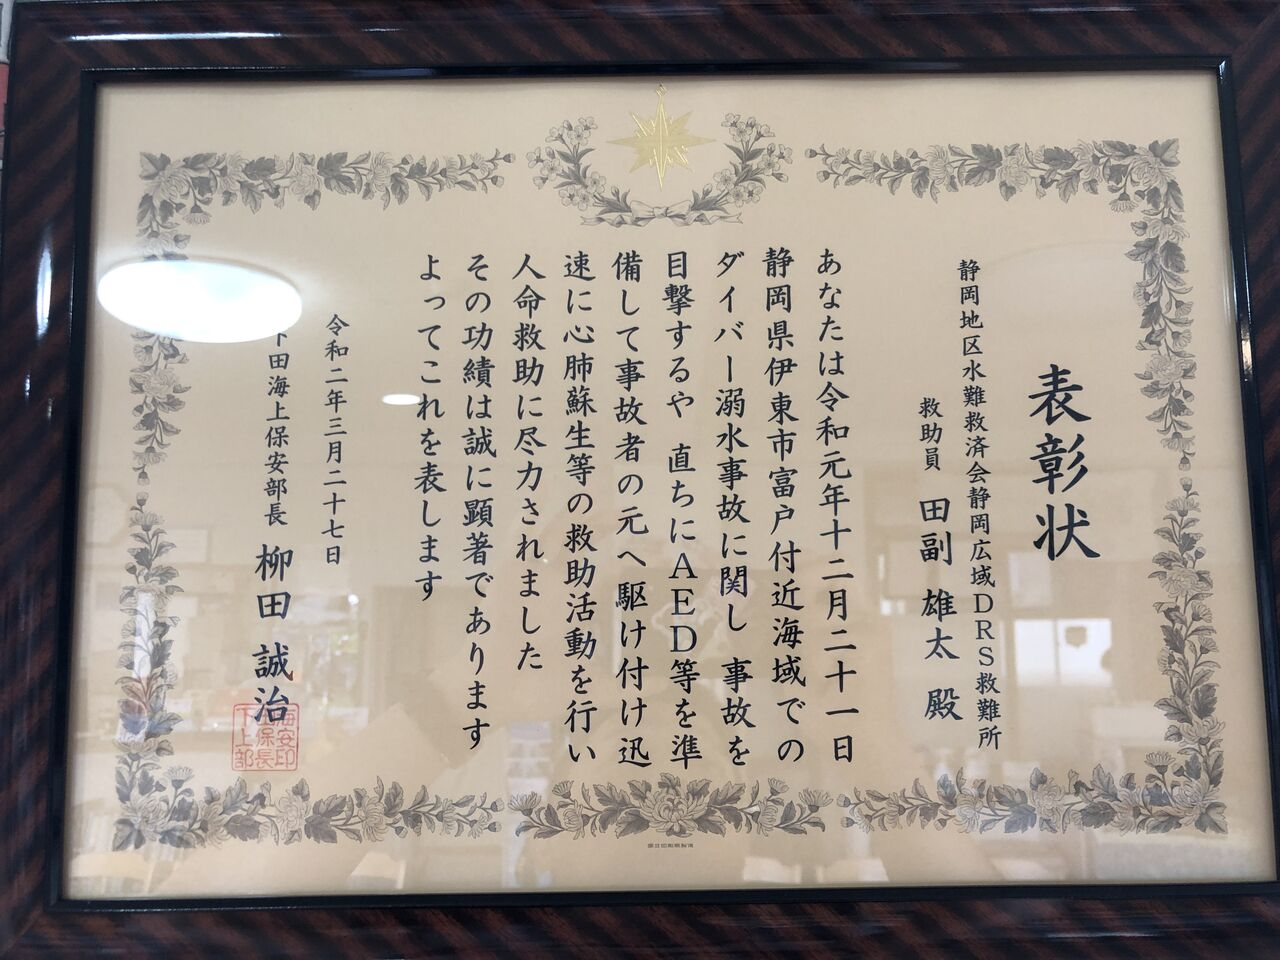 表彰状
静岡地区水難救済会静岡広域DRS救難所
救助員 田副 雄太 殿
あなたは令和元年十二月二十一日
静岡県伊東市富戸付近海域での
ダイバー溺水事故に関し 事故を
目撃するや 直ちにAED等を準
備して事故者の元へ駆け付け迅
速に心肺蘇生等の救助活動を行い
人命救助に尽力されました
その功績は誠に顕著であります
よってこれを表します
令和二年三月二十七日
下田海上保安部長 柳田 誠治